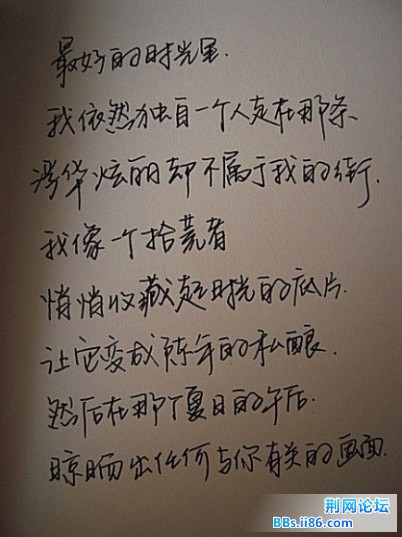 最好的时光里.
我依然独自一个人走在那条
浮华炫丽却不属于我的街.
我像一个拾荒者
悄悄收藏起时光的底片.
让它变成陈年的私酿.
然后在那个夏日的午后.
晾晒出任何与你有关的画面.
荆网论坛
BBs.ii86.com